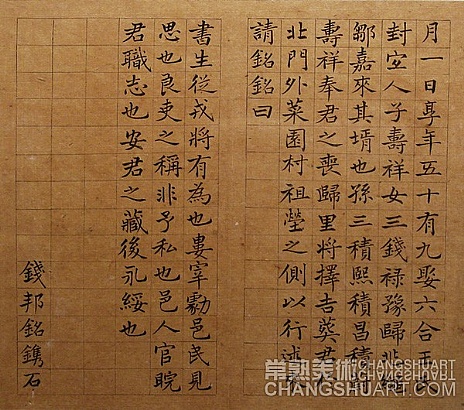 月一日享年五十有九娶六合王氏
封宜人子壽祥女三錢祿豫歸兆
鄒嘉來其壻也孫三積熙積昌積
壽祥奉君之喪歸里將擇吉葬君
北門外菜園村祖塋之側以行述
請銘銘曰
書生從戎將有為也婁宰勷邑民見
思也良吏之稱非予私也邑人官睆
君職志也安君之藏後永綏也
錢邦銘鐫石
常熟美術 CHANGSHUART
CHANGSHUART.COM